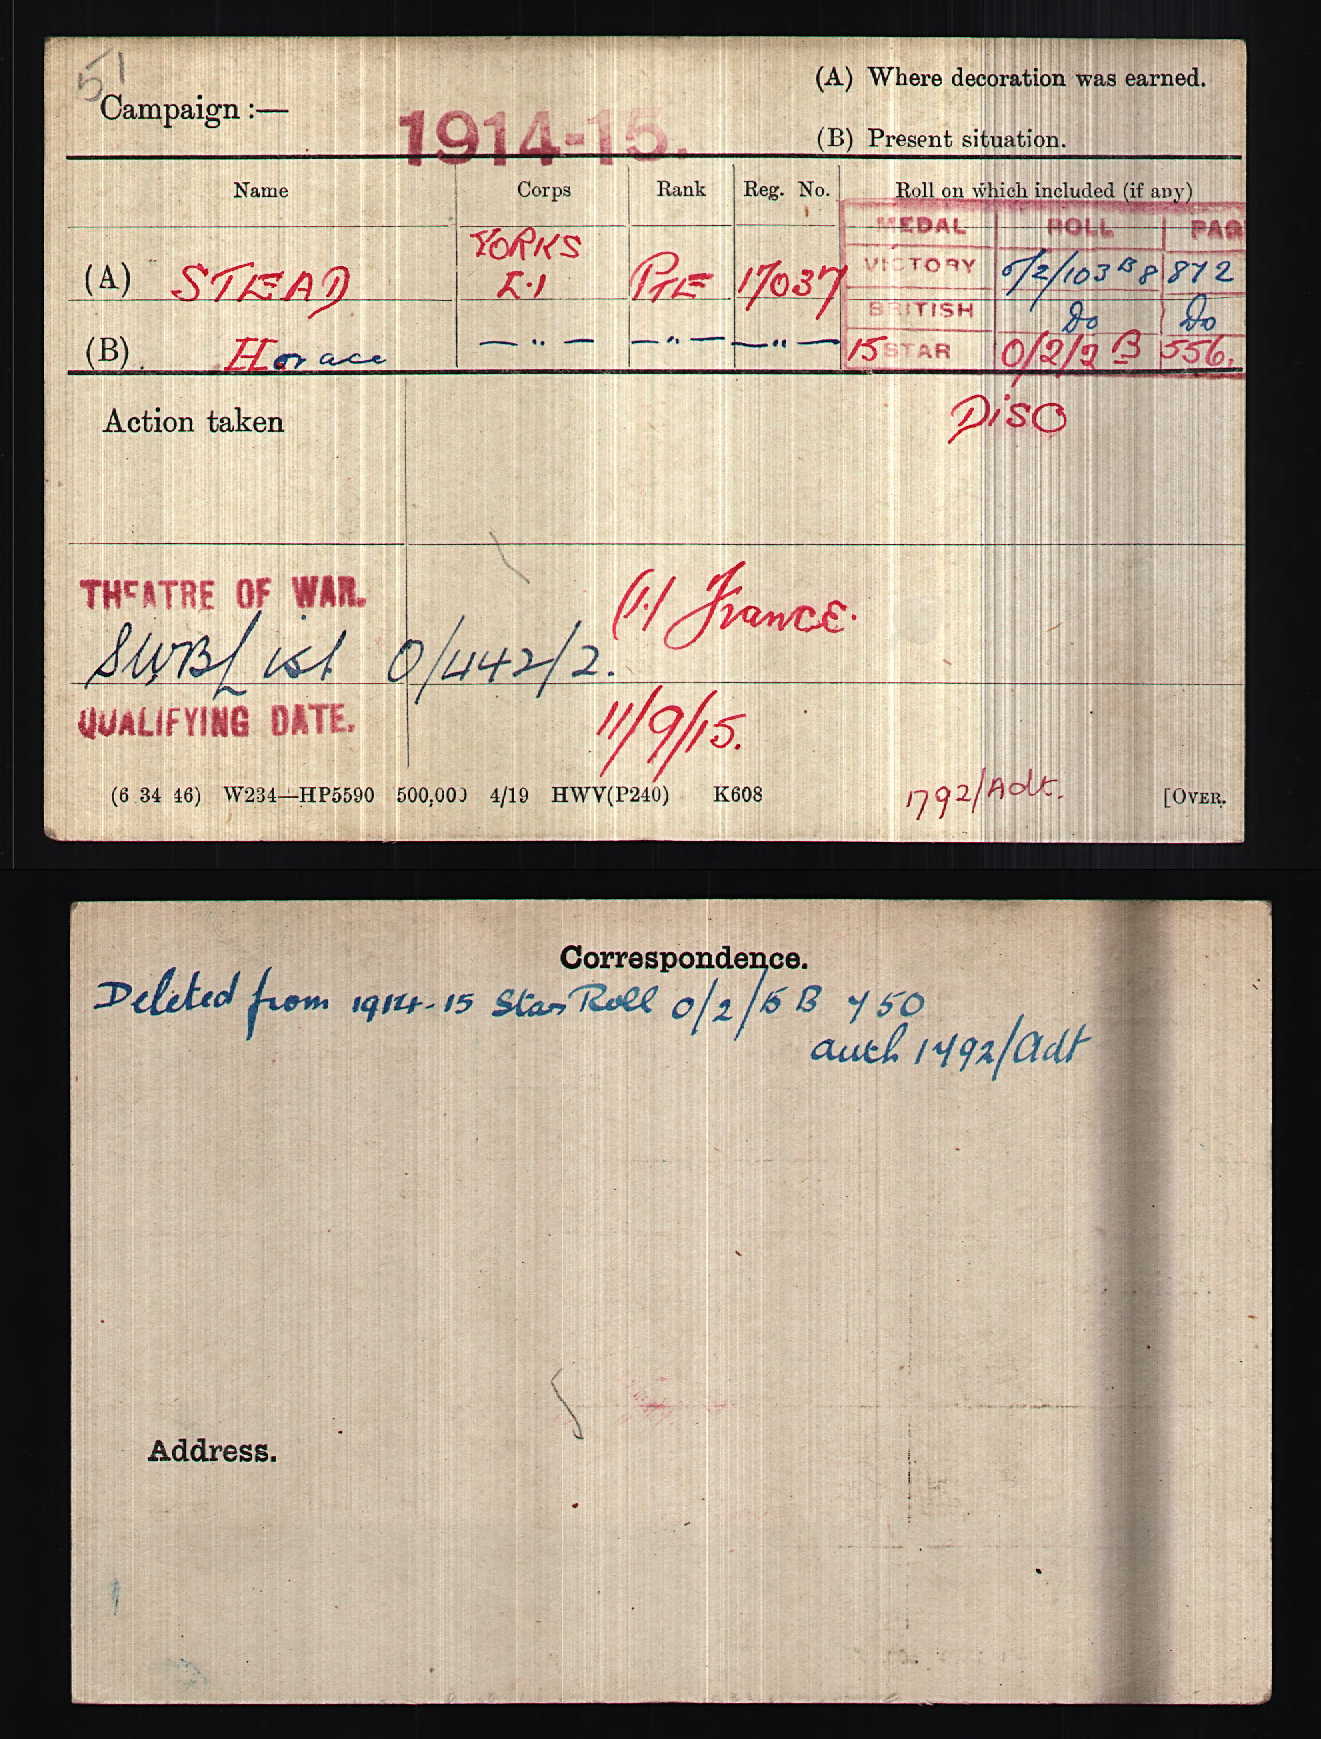 51
(A) Where decoration was earned.
Campaign :—
1914-15.
(B) Present situation.
Name Corps Rank Reg. No. Roll on which included (if any)
MEDAL ROLL PAG
YORKS
(A) STEAD L.I PTE 17037 VICTORY O/2/103 B 8 872
BRITISH Do Do
(B) Horace — " — — " — — " — 15 STAR O/2/2 B 556.
Action taken DISO
THEATRE OF WAR. (1) France.
SWB List O/442/2.
QUALIFYING DATE. 11/9/15.
(6 34 46) W234—HP5590 500,000 4/19 HWV(P240) K608 1792/Adt. [OVER.
Correspondence.
Deleted from 1914-15 Star Roll O/2/5 B 750
auth 1792/Adt
Address.